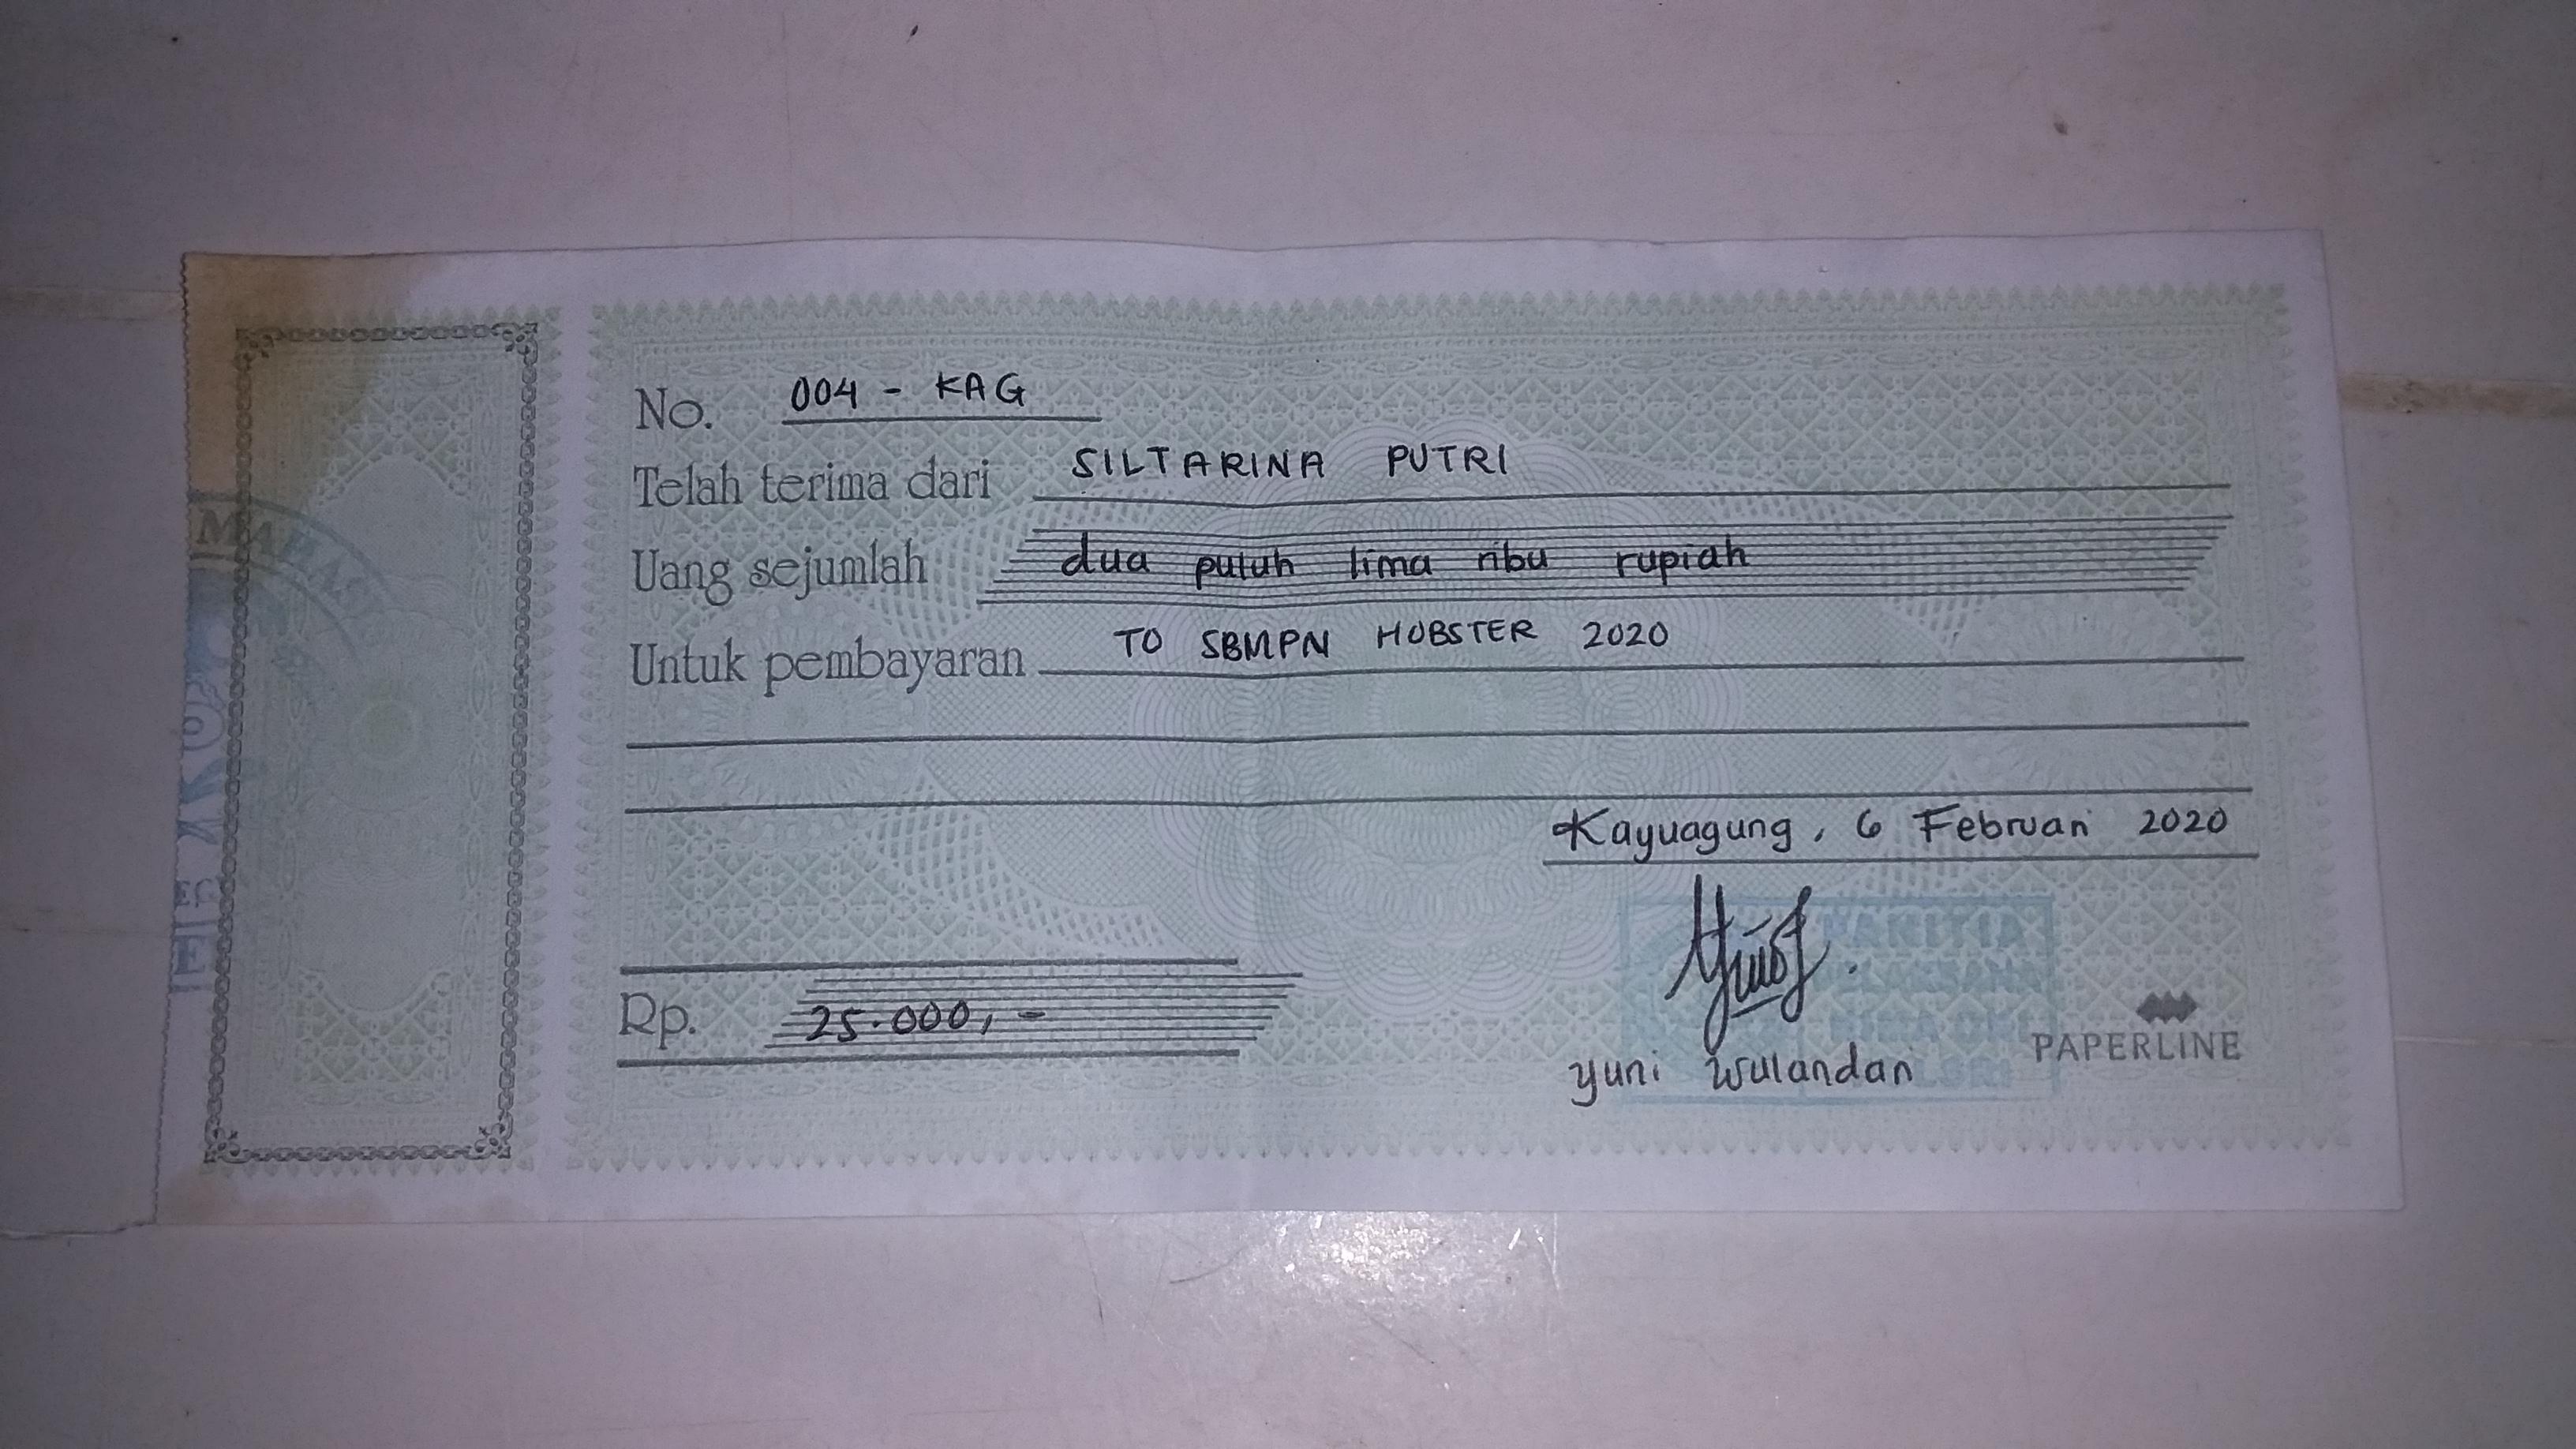 No. 004 - KAG
Telah terima dari SILTARINA PUTRI
Uang sejumlah dua puluh lima ribu rupiah
Untuk pembayaran TO SBMPN HOBSTER 2020
Kayuagung, 6 Februari 2020
Rp. 25.000,-
PANITIA
Yuni Wulandari
PAPERLINE